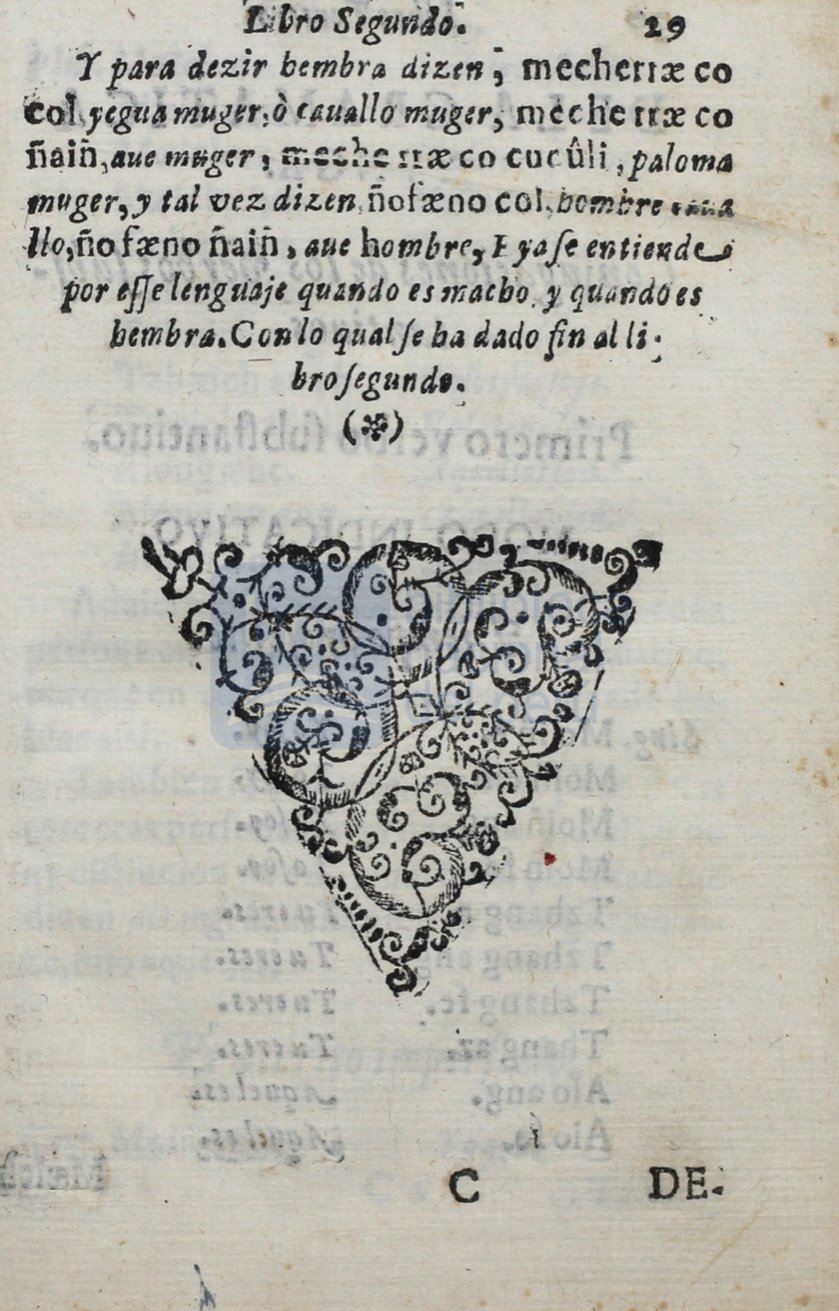 Libro Segundo. 29
Y para dezir hembra dizen, mecherræ co
col, yegua muger, ò cavallo muger, meche rræ co
ñaiñ, aue muger, meche rræ co cucûli, paloma
muger, y tal vez dizen ñofæno col, hombre caua
llo, ño fæno ñaiñ, aue hombre, I ya se entiende
por esse lenguaje quando es macho, y quando es
hembra. Con lo qual se ha dado fin al li-
bro segundo.
(*)
C DE-